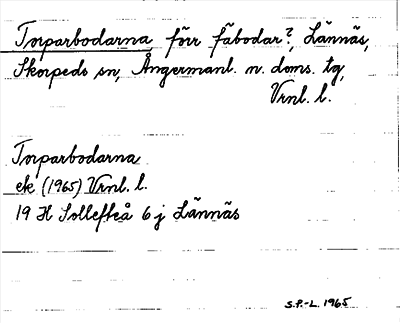 Torparbodarna, förr fäbodar?, Lännäs,
Skorpeds sn, Ångermanl. n. doms. tg,
Vrnl. l.
Torparbodarna
ek (1965) Vrnl. l.
19 H Sollefteå 6 j Lännäs
S.P.-L. 1965